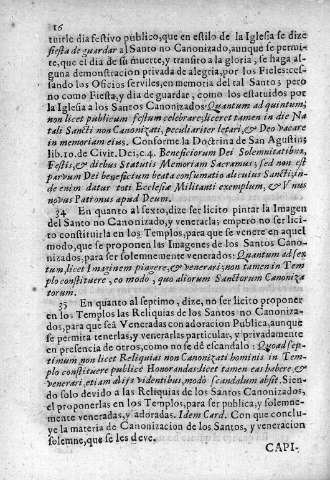 16
tuirle dia festivo publico, que en estilo de la Iglesia se dize
fiesta de guardar al Santo no Canonizado, aunque se permi-
te, que el dia de su muerte, y transito a la gloria, se haga al-
guna demonstracion privada de alegria, por los Fieles: ces-
sando los Oficios serviles, en memoria del tal Santo; pero
no como Fiesta, y dia de guardar, como los estatuidos por
la Iglesia a los Santos Canonizados: Quantum ad quintum,
non licet publicum festum celebrare; licet tamen in die Na-
tali Sancti non Canonizati, peculiariter letari, & Deo vacare
in memoriam eius. Conforme la Doctrina de San Augustin,
lib. 10. de Civit. Dei; c. 4. Beneficiorum Dei Solemnitatibus,
Festis, & diebus Statutis Memoriam Sacramus; sed non est
parvum Dei beneficium beata consumatio alicuius Sancti, in-
de enim datur toti Ecclesiæ Militanti exemplum, & Unus
novus Patronus apud Deum.
34 En quanto al sexto, dize ser licito pintar la Imagen
del Santo no Canonizado, y venerarla; empero no ser lici-
to constituirla en los Templos, para que se venere en aquel
modo, que se proponen las Imagenes de los Santos Cano-
nizados, para ser solemnemente venerados: Quantum ad sex
tum, licet Imaginem pingere, & venerari; non tamen in Tem
plo constituere, eo modo, quo aliorum Sanctorum Canoniza
torum.
35 En quanto al septimo, dize, no ser licito proponer
en los Templos las Reliquias de los Santos no Canoniza-
dos, para que sea Veneradas con adoracion Publica, aunque
se permita tenerlas, y venerarlas particular, y privadamente
en presencia de otros, como no se dè escandalo: Quoad sep-
timum, non licet Reliquias non Canonizati hominis in Tem-
plo constituere publicè Honorandas: licet tamen eas habere &
venerari, etiam alijs videntibus, modò scandalum absit. Sien-
do solo devido a las Reliquias de los Santos Canonizados,
el proponerlas en los Templos, para ser publica, y solemne-
mente veneradas, y adoradas. Idem Card. Con que conclu-
ye la materia de Canonizacion de los Santos, y veneracion
solemne, que se les deve.
CAPI-